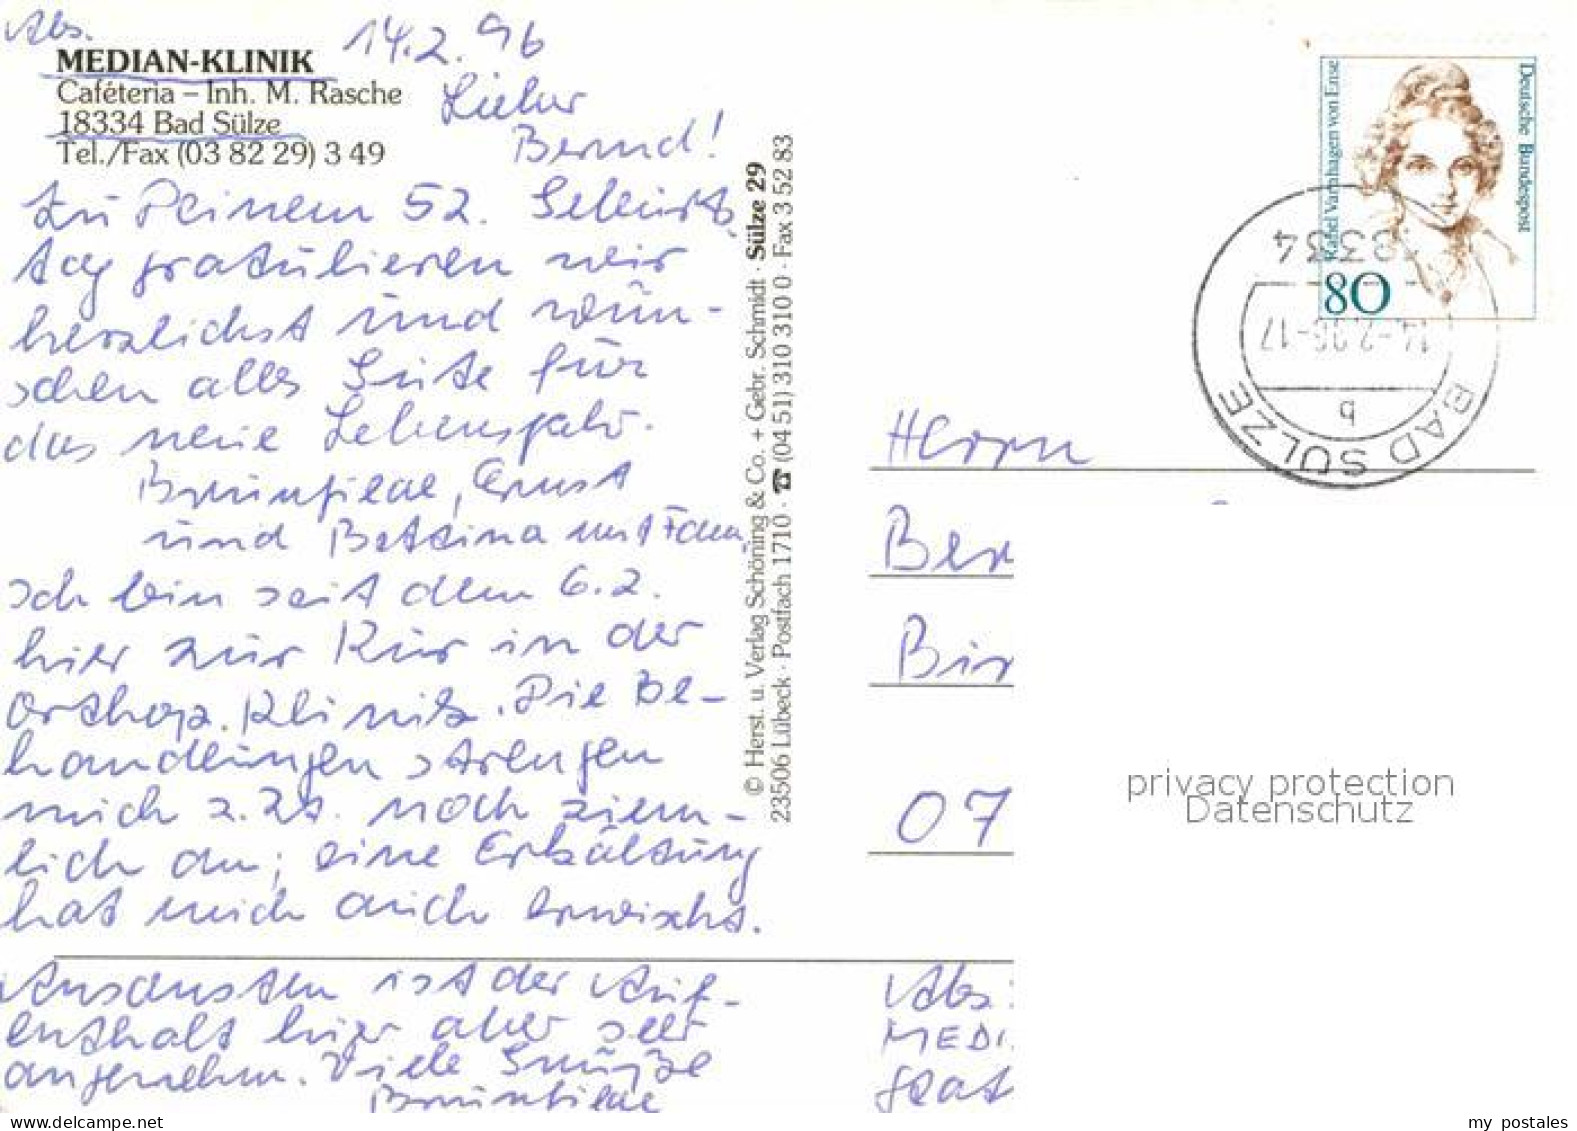 Abs.
14.2.96
MEDIAN-KLINIK
Caféteria – Inh. M. Rasche
18334 Bad Sülze
Tel./Fax (03 82 29) 3 49
Lieber
Bernd!
Zu Deinem 52. Geburts-
tag gratulieren wir
herzlichst und wün-
schen alles Gute für
das neue Lebensjahr.
Brunhilde, Ernst
und Bettina mit Fam.
Ich bin seit dem 6.2.
hier zur Kur in der
Orthop. Klinik. Die Be-
handlungen strengen
mich z.Zt. noch ziem-
lich an; eine Erkältung
hat mich auch erwischt.
Ansonsten ist der Auf-
enthalt hier aber sehr
angenehm. Viele Grüße
Brunhilde
© Herst. u. Verlag Schöning & Co. + Gebr. Schmidt · Sülze 29
23506 Lübeck · Postfach 1710 · ☎ (04 51) 310 310 0 · Fax 3 52 83
Deutsche Bundespost
Rahel Varnhagen von Ense
80
18334
14.-2.96-17
b
BAD SÜLZE
Herrn
Ber
Bir
07
Abs:
MEDI
privacy protection
Datenschutz
my postales